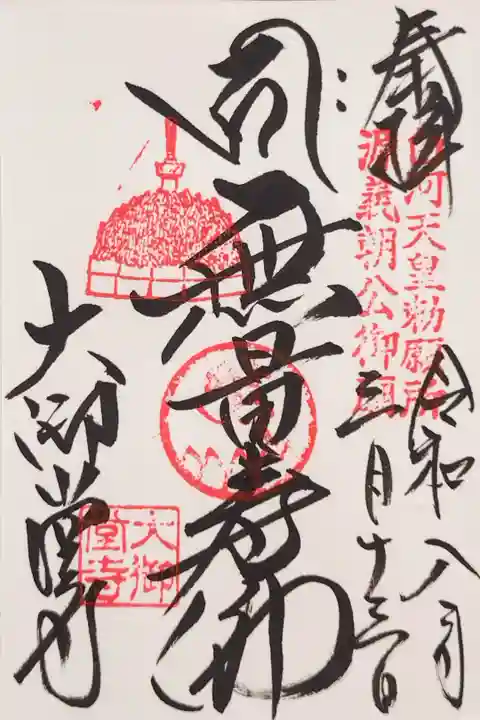 奉拝
白河天皇勅願所
源義朝公御廟
令和八年
三月十三日
無量寿佛
大御堂寺
大御
堂寺